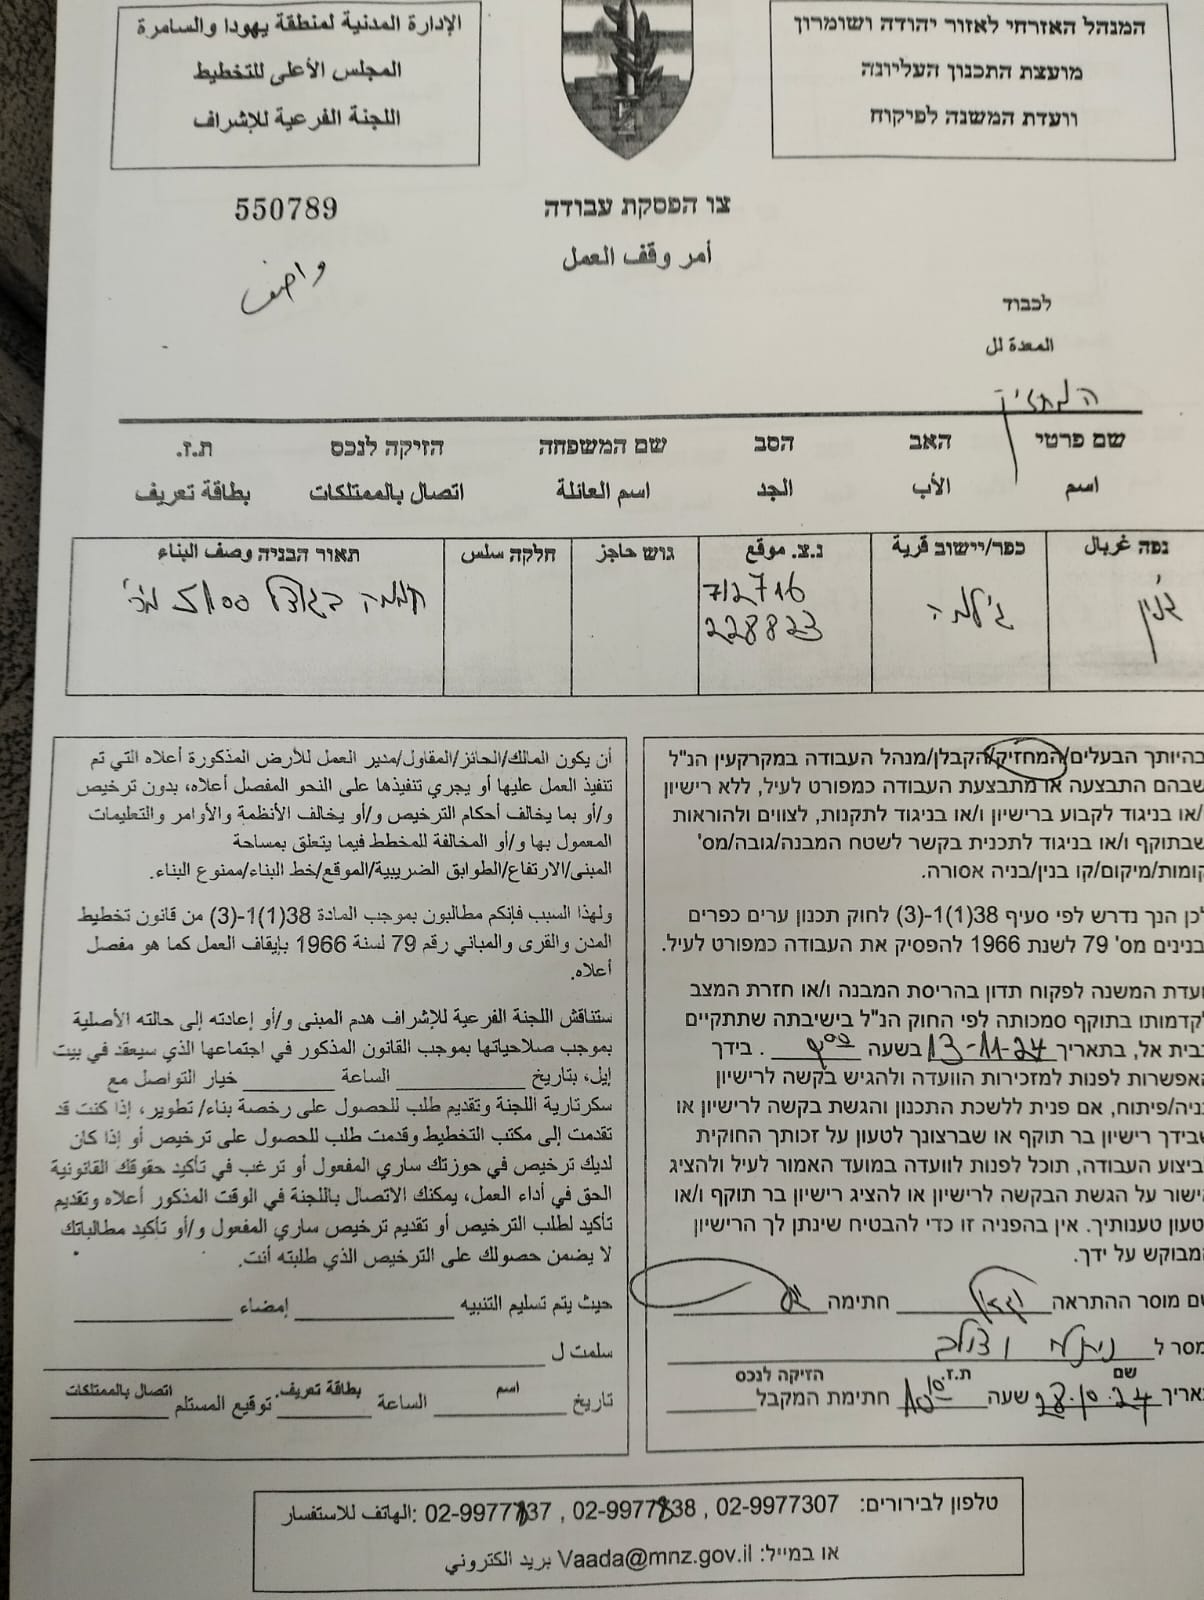 המנהל האזרחי לאזור יהודה ושומרון
מועצת התכנון העליונה
וועדת המשנה לפיקוח
الإدارة المدنية لمنطقة يهودا والسامرة
المجلس الأعلى للتخطيط
اللجنة الفرعية للإشراف
צו הפסקת עבודה
550789
أمر وقف العمل
واصف
לכבוד
المعدة لل
המחזיק
שם פרטי האב הסב שם המשפחה הזיקה לנכס ת.ז.
اسم الأب الجد اسم العائلة اتصال بالممتلكات بطاقة تعريف
נפה غربال כפר/יישוב قرية נ.צ. موقع גוש حاجز חלקה سلس תאור הבניה وصف البناء
ג'נין ג'למה 712716 חממה בגודל 5100 מ"ר
228823
בהיותך הבעלים/המחזיק/הקבלן/מנהל העבודה במקרקעין הנ"ל
שבהם התבצעה או מתבצעת העבודה כמפורט לעיל, ללא רישיון
ו/או בניגוד לקבוע ברישיון ו/או בניגוד לתקנות, לצווים ולהוראות
שבתוקף ו/או בניגוד לתכנית בקשר לשטח המבנה/גובה/מס'
קומות/מיקום/קו בנין/בניה אסורה.
לכן הנך נדרש לפי סעיף 38(1)-(3) לחוק תכנון ערים כפרים
ובנינים מס' 79 לשנת 1966 להפסיק את העבודה כמפורט לעיל.
וועדת המשנה לפקוח תדון בהריסת המבנה ו/או חזרת המצב
לקדמותו בתוקף סמכותה לפי החוק הנ"ל בישיבתה שתתקיים
בבית אל, בתאריך 13-11-24 בשעה 9:00. בידך
האפשרות לפנות למזכירות הוועדה ולהגיש בקשה לרישיון
בניה/פיתוח, אם פנית ללשכת התכנון והגשת בקשה לרישיון או
שבידך רישיון בר תוקף או שברצונך לטעון על זכותך החוקית
לביצוע העבודה, תוכל לפנות לוועדה במועד האמור לעיל ולהציג
אישור על הגשת הבקשה לרישיון או להציג רישיון בר תוקף ו/או
לטעון טענותיך. אין בהפניה זו כדי להבטיח שינתן לך הרישיון
המבוקש על ידך.
שם מוסר ההתראה חתימה
נמסר ל
שם ת.ז. הזיקה לנכס
תאריך 28.10.24 שעה 10:10 חתימת המקבל
أن يكون المالك/الحائز/المقاول/مدير العمل للأرض المذكورة أعلاه التي تم
تنفيذ العمل عليها أو يجري تنفيذها على النحو المفصل أعلاه، بدون ترخيص
و/أو بما يخالف أحكام الترخيص و/أو يخالف الأنظمة والأوامر والتعليمات
المعمول بها و/أو المخالفة للمخطط فيما يتعلق بمساحة
المبنى/الارتفاع/الطوابق الضريبية/الموقع/خط البناء/ممنوع البناء.
ولهذا السبب فإنكم مطالبون بموجب المادة 38(1)-(3) من قانون تخطيط
المدن والقرى والمباني رقم 79 لسنة 1966 بإيقاف العمل كما هو مفصل
أعلاه.
ستناقش اللجنة الفرعية للإشراف هدم المبنى و/أو إعادته إلى حالته الأصلية
بموجب صلاحياتها بموجب القانون المذكور في اجتماعها الذي سيعقد في بيت
إيل، بتاريخ الساعة خيار التواصل مع
سكرتارية اللجنة وتقديم طلب للحصول على رخصة بناء/ تطوير، إذا كنت قد
تقدمت إلى مكتب التخطيط وقدمت طلب للحصول على ترخيص أو إذا كان
لديك ترخيص في حوزتك ساري المفعول أو ترغب في تأكيد حقوقك القانونية
الحق في أداء العمل، يمكنك الاتصال باللجنة في الوقت المذكور أعلاه وتقديم
تأكيد لطلب الترخيص أو تقديم ترخيص ساري المفعول و/أو تأكيد مطالباتك
لا يضمن حصولك على الترخيص الذي طلبته أنت.
حيث يتم تسليم التنبيه إمضاء
سلمت ل
اسم بطاقة تعريف. اتصال بالممتلكات
تاريخ الساعة توقيع المستلم
טלפון לבירורים: 02-9977307 , 02-9977838 , 02-9977737 :الهاتف للاستفسار
או במייל: Vaada@mnz.gov.il بريد الكتروني